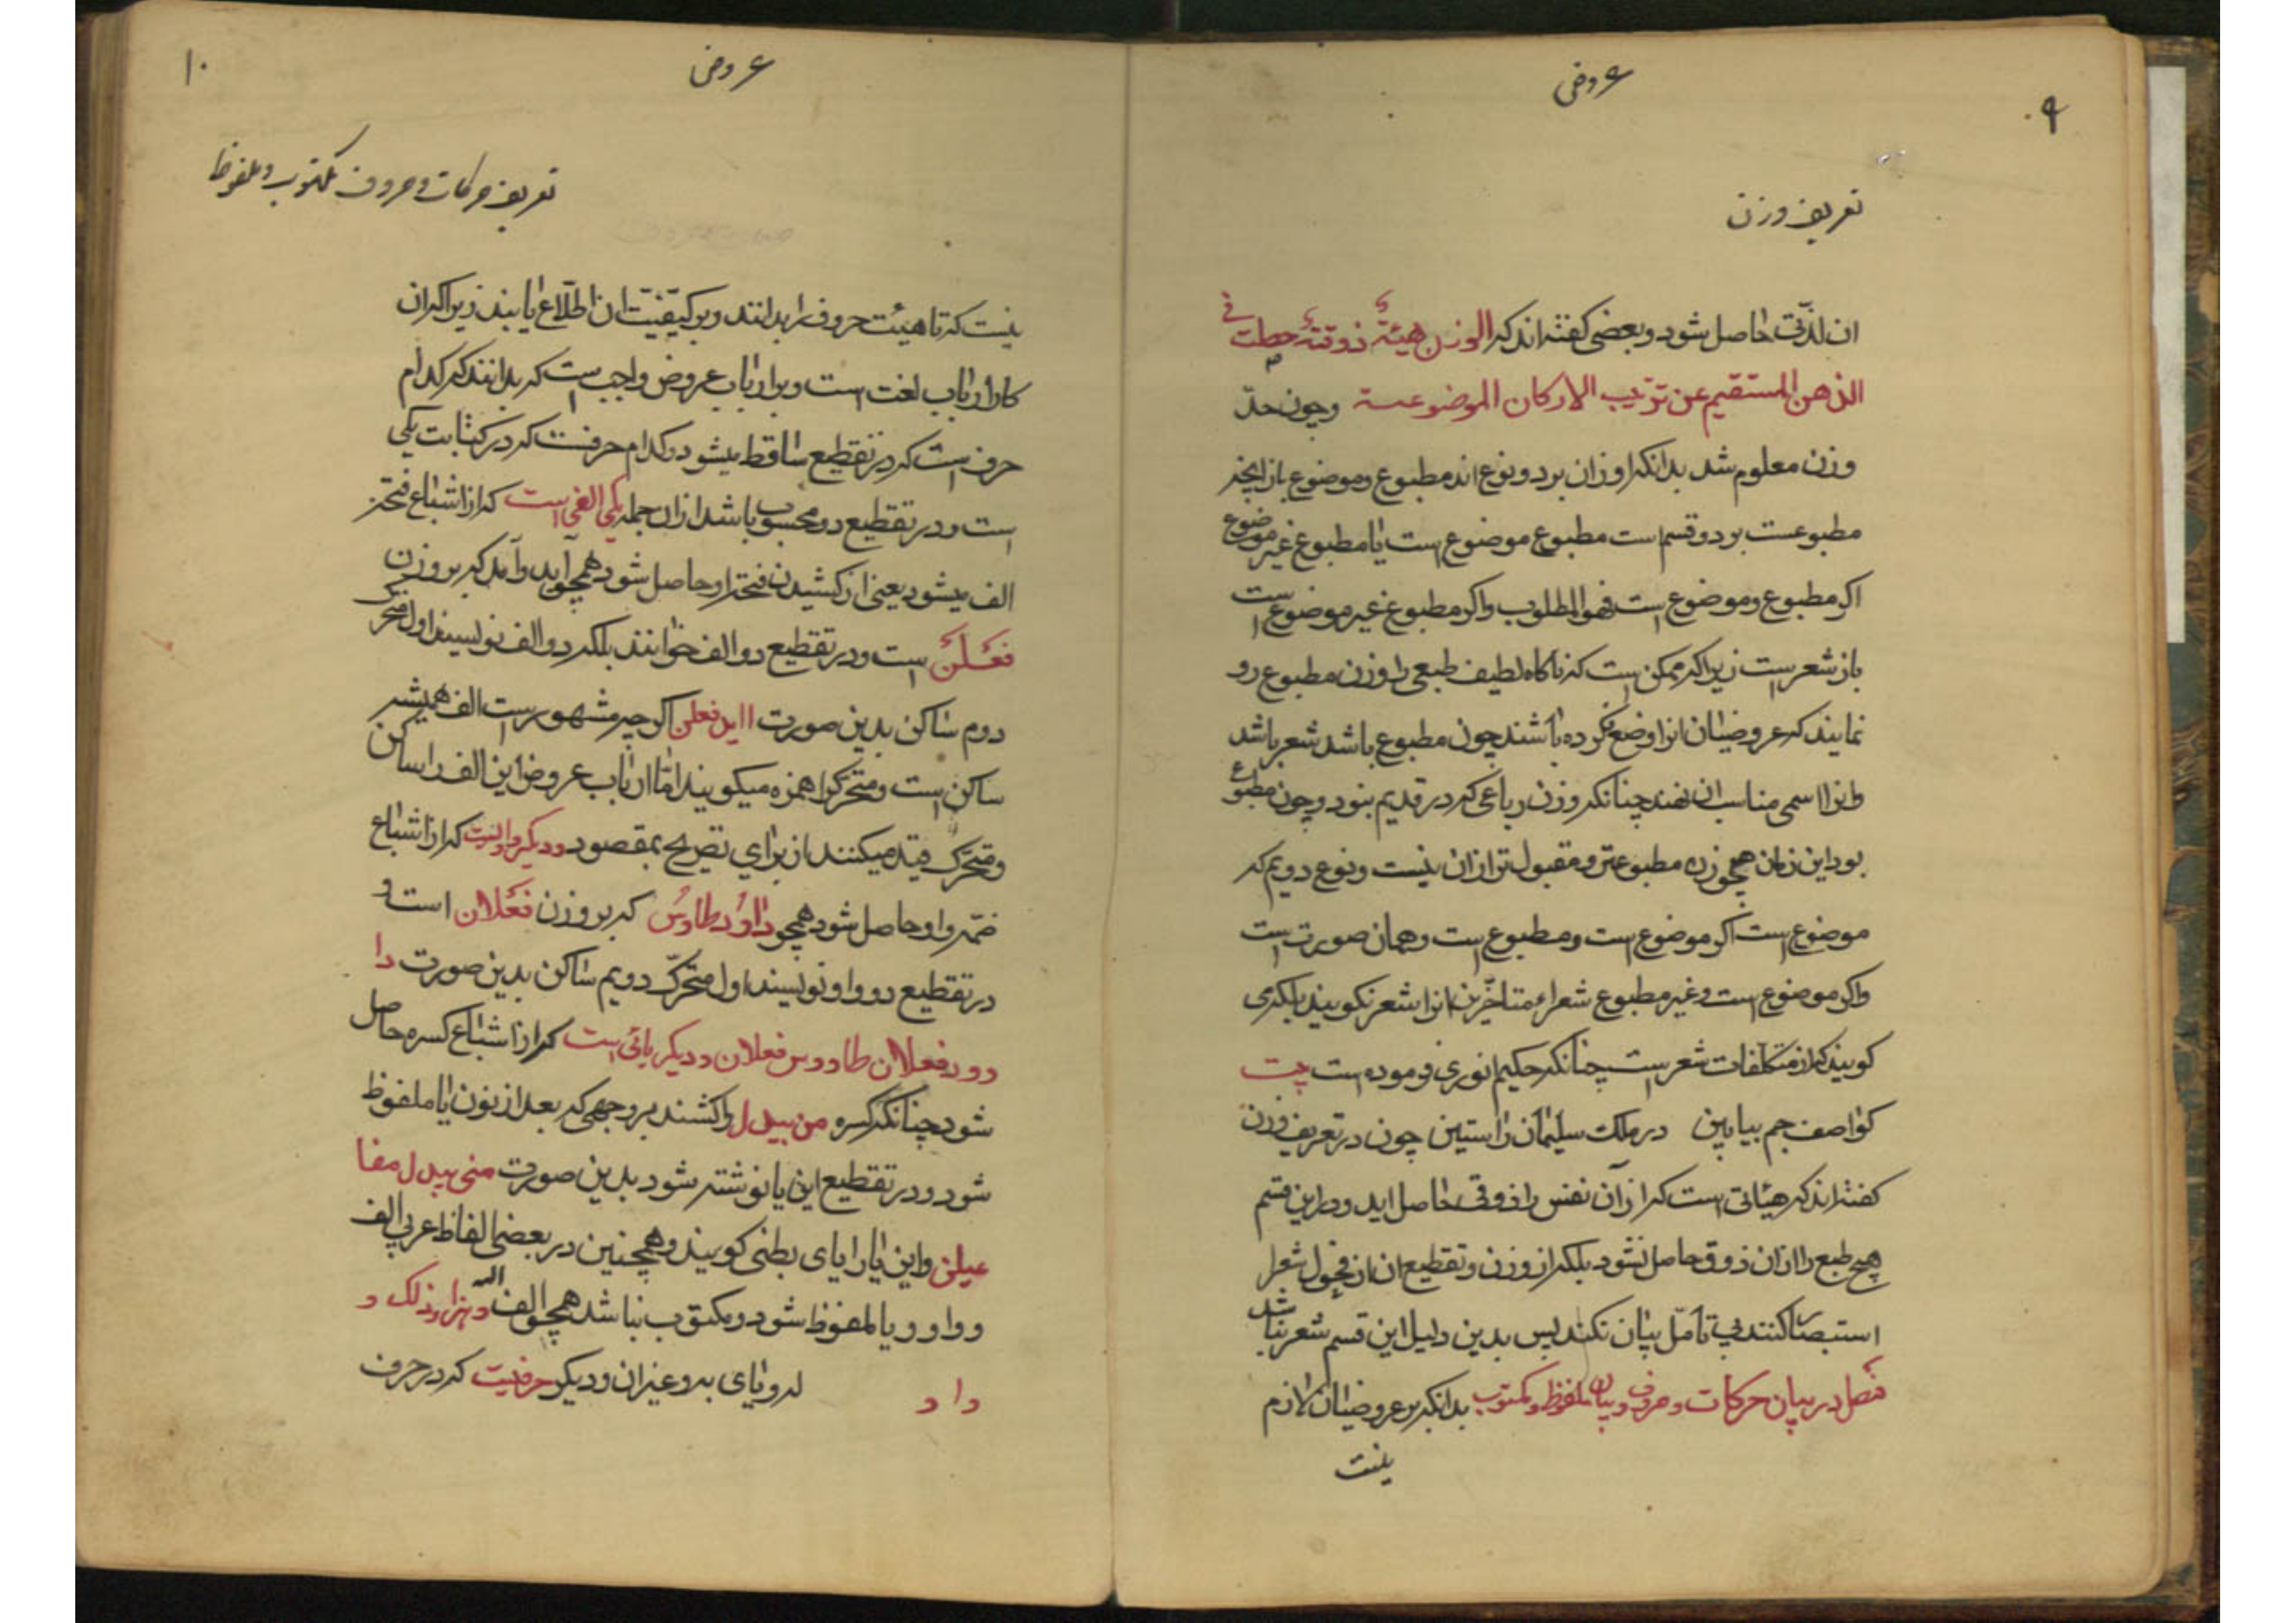 ۹
عروض
تعریف وزن
ان لذّت حاصل شود و بعضی گفته‌اند که الوزن هیئة ذوقیة حصلت فی
الذهن المستقیم عن ترتیب الارکان الموضوعة و چون حدّ
وزن معلوم شد بدانکه اوزان بر دو نوع‌اند مطبوع و موضوع باز انچه
مطبوعست بر دو قسم است مطبوع موضوع است یا مطبوع غیر موضوع
اکر مطبوع و موضوع است فهو المطلوب و اکر مطبوع غیر موضوع است
باز شعر است زیرا که ممکن است که ناکاه لطیف طبعی را وزن مطبوع رو
نمایند که عروضیان انرا وضع نکرده باشند چون مطبوع باشد شعر باشد
و انرا اسمی مناسب ان نهند چنانکه وزن رباعی که در قدیم نبود و چون مطبوع
بود این زمان هیچ وزن مطبوعتر و مقبول‌تر از ان نیست و نوع دویم که
موضوع است اکر موضوع است و مطبوع است و همان صورت است
و اکر موضوع است و غیر مطبوع شعراء متاخّرین انرا شعر نکویند بلکه می
کویند که از متکلّفات شعر است چنانکه حکیم انوری فرموده است بیت
کو اصف جم بیا ببین در ملک سلیمان راستین چون در تعریف وزن
کفته‌اند که هیئاتی است که از آن نفس را ذوقی حاصل اید و در این قسم
هیچ طبع را از ان ذوق حاصل نشود بلکه از وزن و تقطیع ان از فحول شعرا
استبصار کنند بی تامّل بیان نکنند پس بدین دلیل این قسم شعر نباشد
فصل در بیان حرکات و حروف و بیان ملفوظ و مکتوب بدانکه بر عروضیان لازم
نیست
۱۰
عروض
تعریف حرکات و حروف مکتوب و ملفوظ
نیست که تا هیئت حروف را بدانند و بر کیفیّت ان اطّلاع یابند زیرا که ان
کار ارباب لغت است و بر ارباب عروض واجب است که بدانند که کدام
حرف است که در تقطیع ساقط میشود و کدام حرفست که در کتابت یکی
است و در تقطیع دو محسوب باشد از ان جمله یکی الفی است که از اشباع فتحه
الف میشود یعنی از کشیدن فتحه او حاصل شود همچو آید و آمد که بر وزن
فَعْلُنْ است و در تقطیع دو الف خوانند بلکه دو الف نویسند اول متحرّک
دوم ساکن بدین صورت ااید فعلن اکر چه مشهور است الف همیشه
ساکن است و متحرّک را همزه میکویند امّا ارباب عروض این الف را ساکن
و متحرّک قید میکنند از برای تصریح بمقصود و دیگر واویست که از اشباع
ضمّه واو حاصل شود همچو داوُد طاوُس که بر وزن فَعْلان است و
در تقطیع دو واو نویسند اول متحرّک دویم ساکن بدین صورت دا
وود فعلان طاووس فعلان و دیکر یائی است که از اشباع کسره حاصل
شود چنانکه کسره من بیدل را کشند بر وجهی که بعد از نون یا ملفوظ
شود و در تقطیع این یا نوشته شود بدین صورت منی بیدل مفا
عیلن و این یا را یای بطنی کویند و همچنین در بعضی الفاظ عربی الف
و واو و یا ملفوظ شود و مکتوب نباشد همچو الف اله و هذا و ذلک و
داود له و یای به و غیر ان و دیکر حرفیست که در حرف